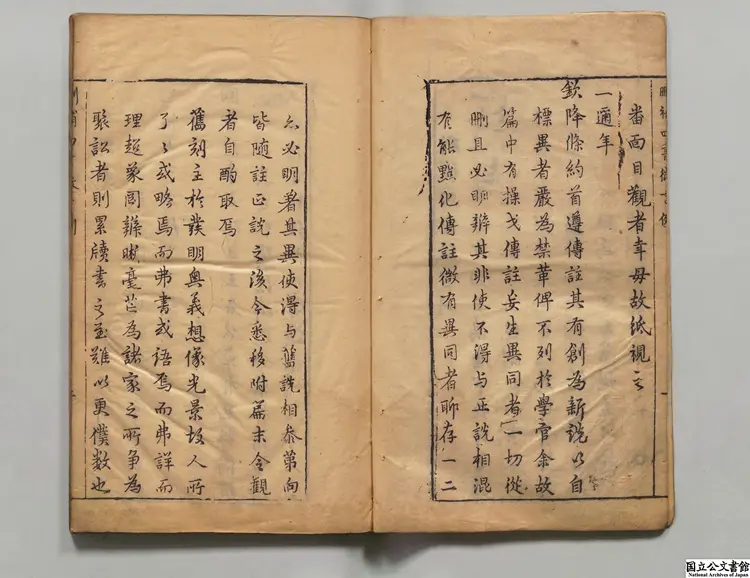 番面目觀者幸毋故紙視之
一邇年
欽降條約首遵傳註其有創為新說以自
標異者嚴為禁革俾不列於學官余故
篇中有操戈傳註妄生異同者一切從
刪且必明辨其非使不得与正說相混
有能點化傳註微有異同者聊存一二
亦必明著其異使得与舊說相參第向
皆隨註正說之後今悉移附篇末令觀
者自酌取焉
舊刻主於發明奧義想像光景故人所
了了或略焉而弗書或語焉而弗詳而
理超象罔辨晰毫芒為諸家之所爭為
聚訟者則累牘書之至難以更僕數也
国立公文書館
National Archives of Japan